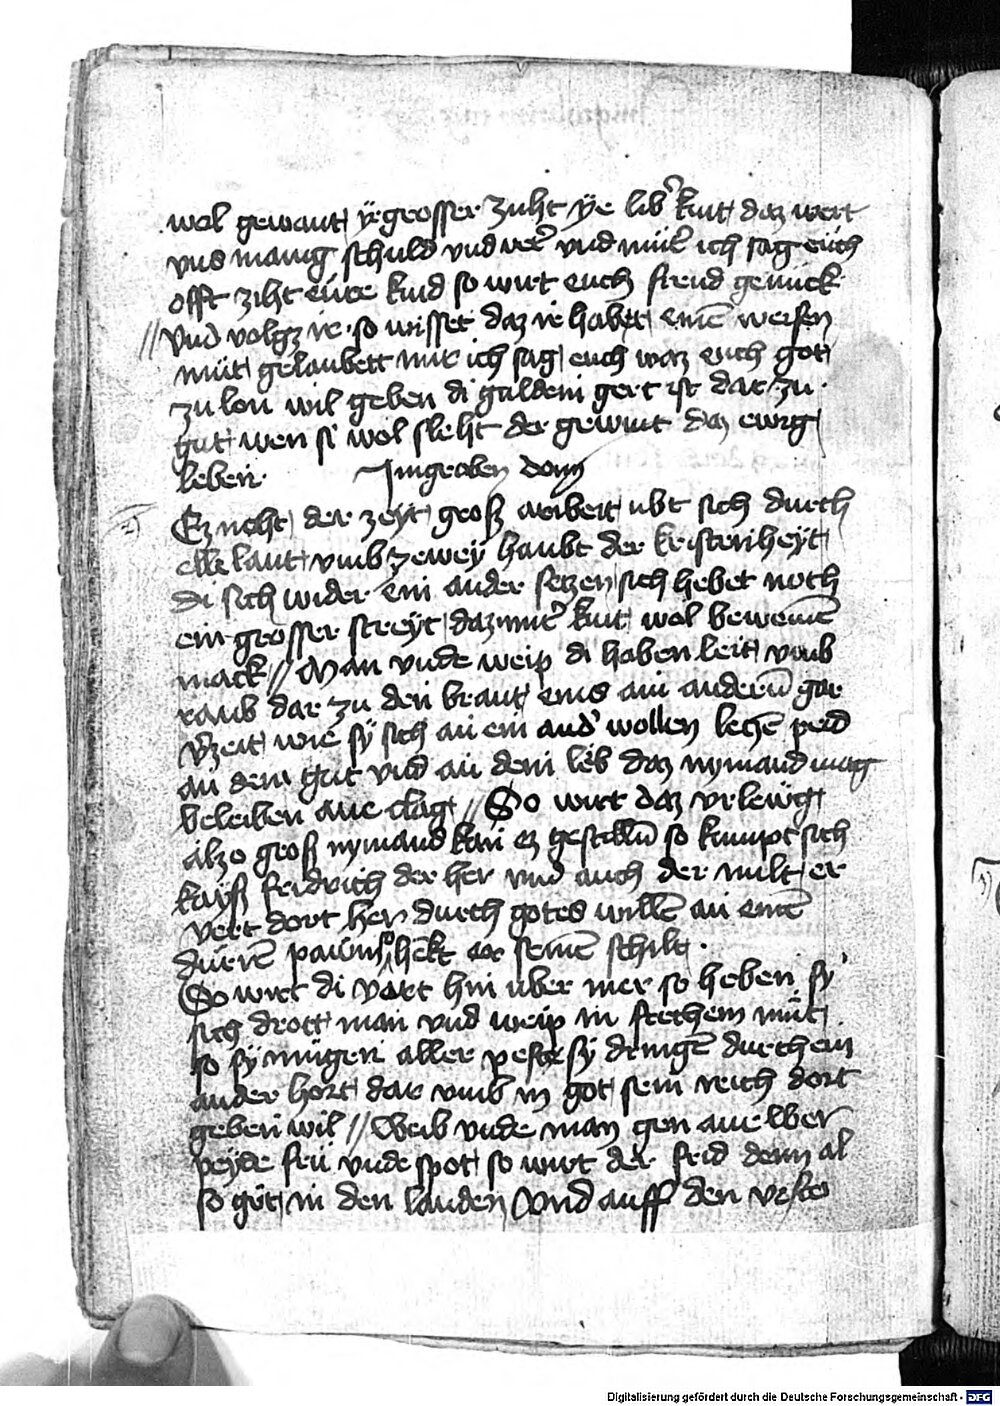 wol gewant ÿe grosser zuht ÿe lib' kint daz wert
vnd manig schuld vnd ver' vnd müt' ich sag eüch
offt ziht eüre kind so wirt euch freud genück
// vnd volgz ir so wisset daz ir habtt einē weisen
müt gelaubett mir ich sag euch waz euch got
zu lon wil geben di guldein gert ist dar zu
gut wen si wol sleht der gewint daz ewig
leben. Im groben don
Ez noht der zeyt groß arbeit ubt sich durch
elle lant vmb zewey haubt der kristenheyt
di sich wider ein ander setzen sich hebet noch
ein grosser streyt daz mūt' kint wol beweinē
mack // Man vnde weip di haben leit vmb
raub dar zu den brant eins am anderū gar
v'zeit wie sÿ sich an ein and' wollen leczē peid
an dem gut vnd an dem leib daz nymand mag
beleiben ane clag // So wirt daz vrlewg
alzo groß nymand kan ez gestillū so kumpt sich
kayß fridrich der her vnd auch der milt er
vert dort her durch gotes willē an einē
dürrē pawm so henkt er seinē schilt .
So wirt di vart hin uber mer so heben sy'
sich drott man vnd weip in stethem müt
so sÿ mügen aller peste sÿ dringē durch ein
ander hort dar vmb in got sein reich dort
geben wil // Weib vnde man gen ane wer
peyde frü vnde spot so wirt der frid denn al
so güt in den landen vnd auff den vesten
Digitalisierung gefördert durch die Deutsche Forschungsgemeinschaft - DFG